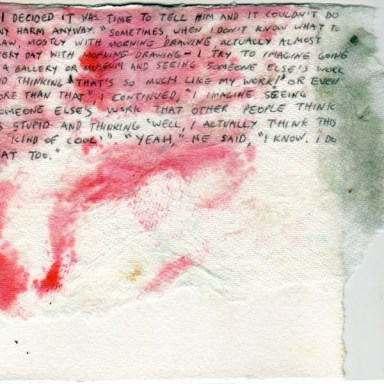 I DECIDED IT WAS TIME TO TELL HIM AND IT COULDN'T DO
ANY HARM ANYWAY. "SOMETIMES, WHEN I DON'T KNOW WHAT TO
RAW, MOSTLY WITH MORNING DRAWING, ACTUALLY ALMOST
ERY DAY WITH MORNING DRAWING - I TRY TO IMAGINE GOING
A GALLERY OR MUSEUM AND SEEING SOMEONE ELSE'S WORK
ND THINKING 'THAT'S SO MUCH LIKE MY WORK!' OR EVEN
ORE THAN THAT", I CONTINUED, "I IMAGINE SEEING
OMEONE ELSE'S WORK THAT OTHER PEOPLE THINK
S STUPID AND THINKING 'WELL, I ACTUALLY THINK THIS
KIND OF COOL'". "YEAH," HE SAID, "I KNOW. I DO
AT TOO.